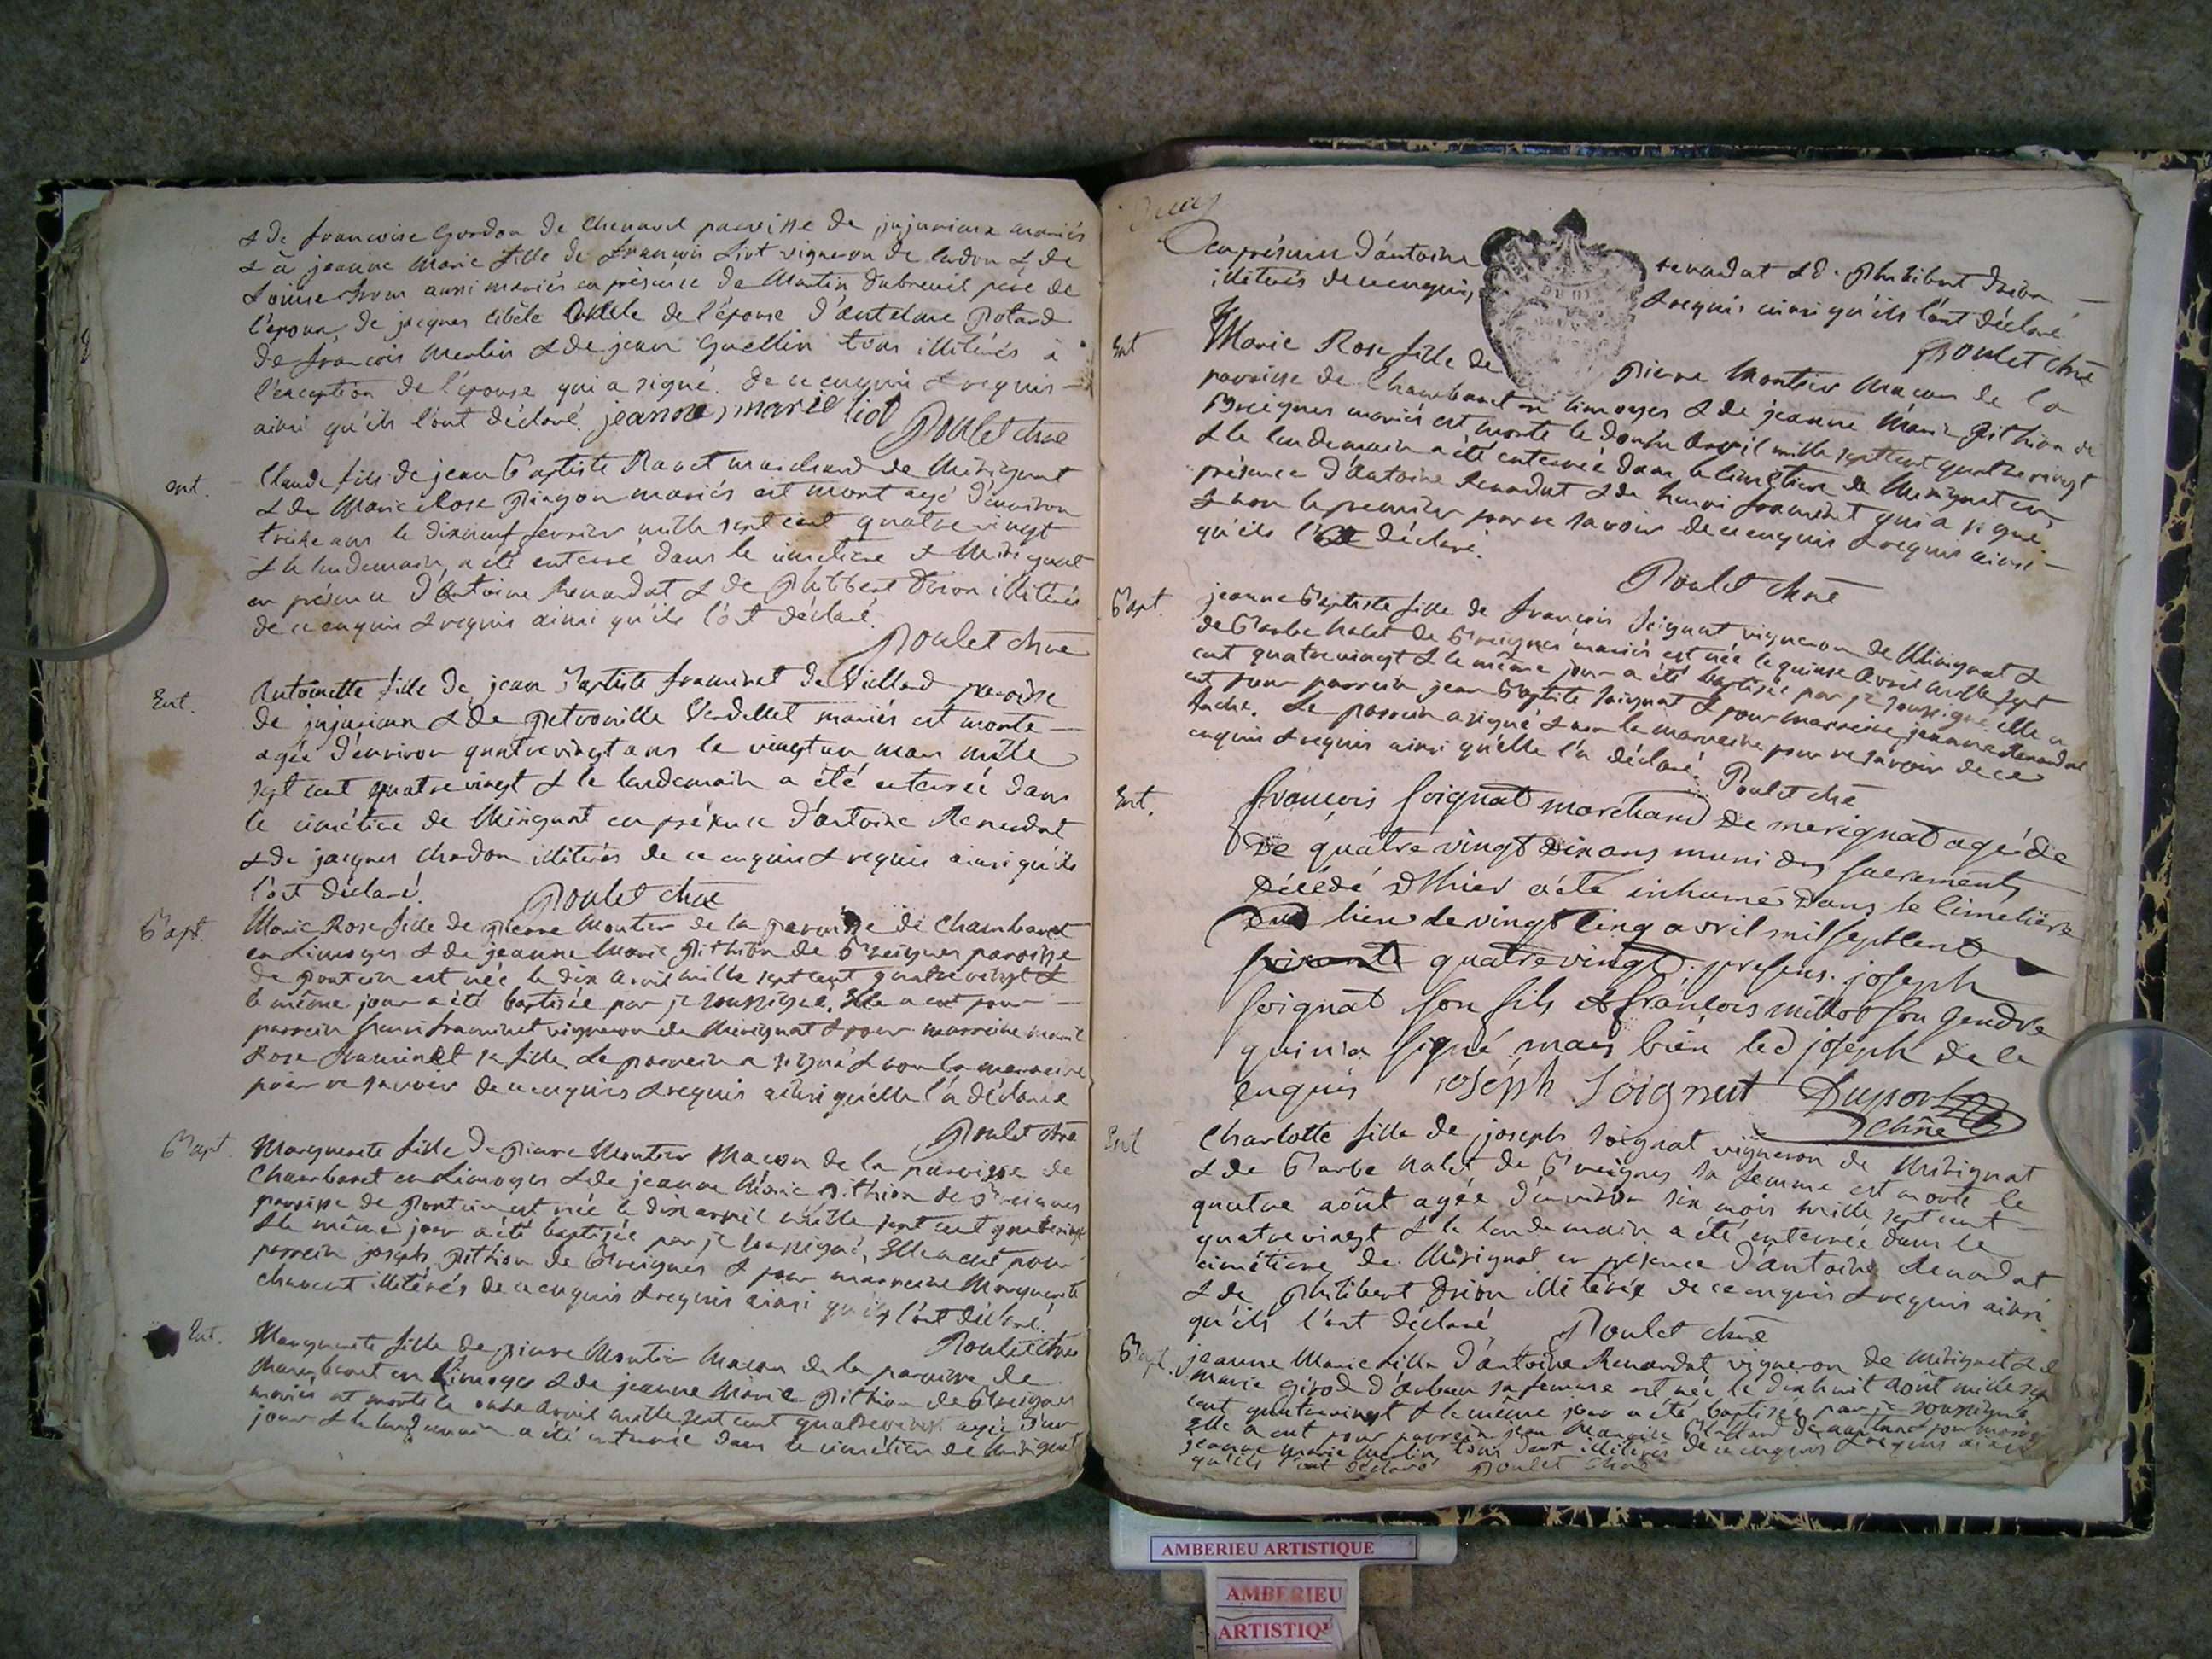 & de francoise Gordon de Chenavel paroisse de jujurieux mariés
& à jeanne Marie fille de françois Liot vigneron de &  de
Louise aussi mariés en présence de Martin Dubreuil père de
l'époux, de jacques oncle de l'épouse d'antelme Potard
de françois Merlin & de jean Guellin tous illiterés à
l'exception de l'épouse qui a signé. de ce enquis & requis
ainsi qu'ils l'ont déclaré. jeanne marie liot Poulet chne
ent. Claude fils de jean Baptiste Ravet marchand de Mérignat
& de Marie Rose mariés est mort agé d'environ
treize ans le dixneuf fevrier mille sept cent quatre vingt
& le lendemain, a été enterré dans le cimetiere de Mérignat
en présence d'Antoine Renardat & de Philibert Drion illiterés
de ce enquis & requis ainsi qu'ils l'ont déclaré.
Poulet chne
Ent. Antoinette fille de jean Baptiste framinet de Villard paroisse
de jujurieux & de Petronille Verdellet mariés est morte
agée d'environ quatre vingt ans le vingt un mars mille
sept cent quatre vingt & le lendemain a été enterrée dans
le cimétiere de Mérignat en présence d'antoine Renardat
& de jacques chardon illiterés de ce enquis & requis ainsi qu'ils
l'ont déclaré. Poulet chne
Bapt. Marie Rose fille de pierre Montier de la paroisse de Chambaret
en Limoges & de jeanne Marie Pithion de Breignes paroisse
de Poncin est née le dix avril mille sept cent quatre vingt &
le même jour a été baptisée par je soussigné. Elle a eut pour
parrein henri framinet vigneron de Merignat & pour marreine marie
Rose framinet sa fille. Le parrein a signé & non la marreine
pour ne savoir de ce enquis & requis ainsi qu'elle l'a déclaré
Poulet chne
Bapt. Marguerite fille de Pierre Montier Maçon de la paroisse de
Chambaret en Limoges & de jeanne Marie Pithion de Breignes
paroisse de Poncin est née le dix avril mille sept cent quatre vingt
& le même jour a été baptisée par je soussigné, Elle a eut pour
parrein joseph Pithion de Breignes & pour marreine Marguerite
chavent illiterés de ce enquis & requis ainsi qu'ils l'ont déclaré.
Poulet chne
Ent. Marguerite fille de pierre Montier Maçon de la paroisse de
Chambaret en Limoges & de jeanne Marie Pithion de Breignes
mariés est morte le onze avril mille sept cent quatre vingt agée d'un
jour & le lendemain a été enterrée dans le cimétiere de Mérignat
en présence d'antoine renardat & de Philibert Drion
illiterés de ce enquis, & requis ainsi qu'ils l'ont déclaré
Poulet chne
Ent Marie Rose fille de Pierre Montier Maçon de la
paroisse de Chambaret en Limoges & de jeanne Marie Pithion de
Breignes mariés est morte le douze avril mille sept cent quatre vingt
& le lendemain a été enterrée dans le cimétiere de Mérignat en
présence d'Antoine Renardat & de henri framinet qui a signé
& non le premier pour ne savoir de ce enquis & requis ainsi
qu'ils l'ont déclaré.
Poulet chne
Bapt. jeanne Baptiste fille de françois Soignat vigneron de Mérignat &
de Barbe Nalet de Breignes mariés est née le quinse avril mille sept
cent quatre vingt & le même jour a été baptisée par je soussigné elle a
eut pour parrein jean Baptiste Soignat & pour marreine jeanne Renardat
. Le parrein a signé & non la marreine pour ne savoir de ce
enquis & requis ainsi qu'elle l'a déclaré. Poulet chne
Ent. françois soignat marchand de merignat agé de
de quatre vingt dix ans muni des sacrements
décédé d'hier a été inhumé dans le cimetière
du lieu le vingt cinq avril mil sept cent
soixante quatre vingt. presens. joseph
soignat son fils et françois millot son gendre
qui n'a signé mais bien led joseph de ce
enquis joseph Soignat Dupont
chne
Ent Charlotte fille de joseph soignat vigneron de Mérignat
& de Barbe Nalet de Breignes sa femme est morte le
quatre août agée d'environ six mois mille sept cent
quatre vingt & le lendemain a été enterrée dans le
cimétiere de Mérignat en présence d'antoine Renardat
& de Philibert Drion illiterés de ce enquis & requis ainsi
qu'ils l'ont déclaré Poulet chne
Bapt. jeanne Marie fille d'antoine Renardat vigneron de Mérignat & de
marie girod d'arbent sa femme est née le dixhuit août mille sept
cent quatre vingt & le même jour a été baptisée par je soussigné
Elle a eut pour parrein jean & pour marreine
jeanne marie Merlin tous deux illiterés de ce enquis & requis ainsi
qu'ils l'ont déclaré Poulet chne
AMBERIEU ARTISTIQUE
AMBERIEU
ARTISTIQ